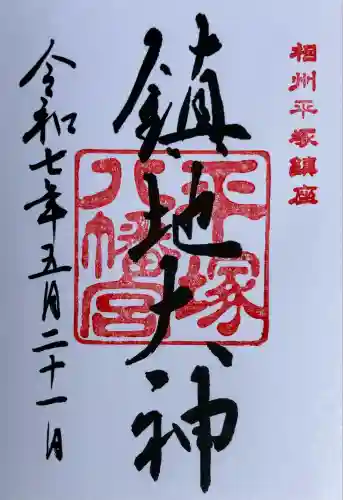 相州平塚鎮座
鎮地大神
平塚
八幡宮
令和七年五月二十一日